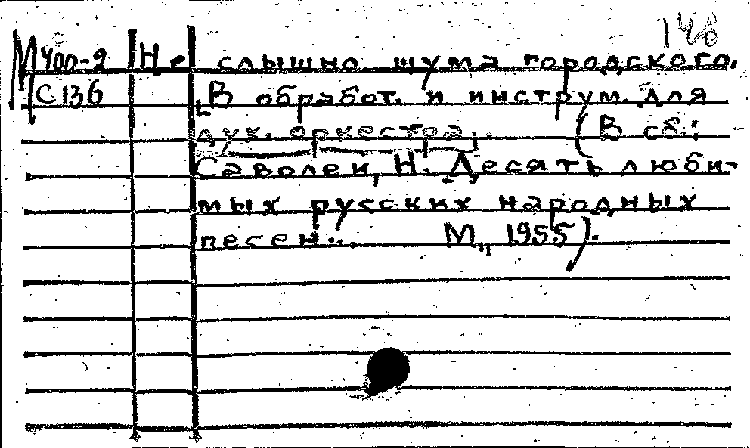 148
М 400-2 Не слышно шума городского.
С 136 [В обработ. и инструм. для
дух. оркестра. (В сб.:
Саволей, Н. Десять люби-
мых русских народных
песен... М., 1955).